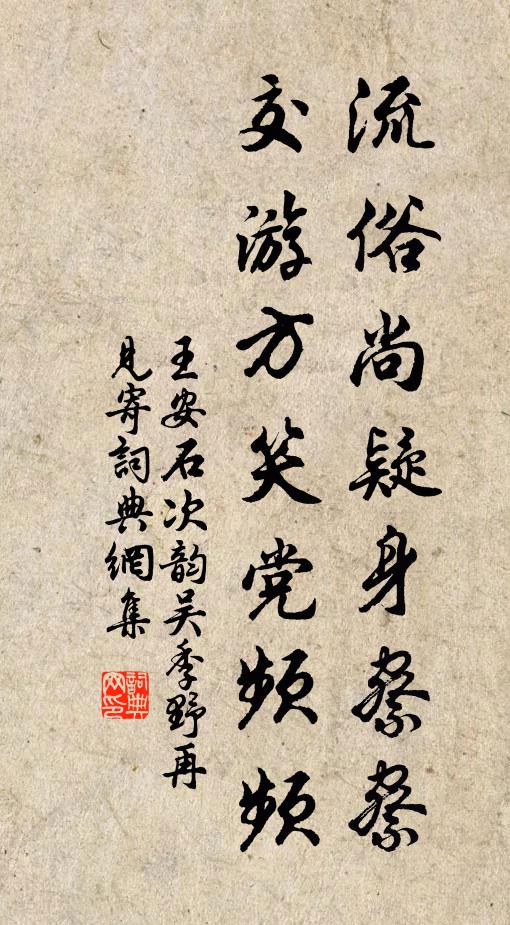 流俗尚疑身察察
交游方笑党频频
王安石次韵吴季野再
见寄詞典網集
詞典
网印